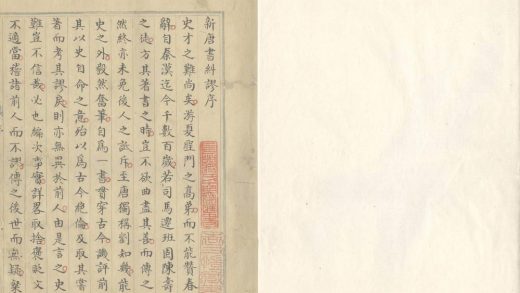 新唐書糾謬序
史才之難尚矣游夏聖門之高弟而不能贊春
辭自秦漢迄今千數百歲若司馬遷班固陳壽
之徒方其著書之時豈不欲曲盡其善而傳之
然終亦未免後人之詆斥至唐獨稱劉知幾能
史之外毅然奮筆自爲一書貫穿古今譏評前
其以史自命之意殆以爲古今絶倫及取其嘗
著而考其謬戾則亦無異於前人由是言之史
難豈不信哉必也編次事實詳畧取捨褒貶文
不適當稽諸前人而不謬傳之後世而無疑粲